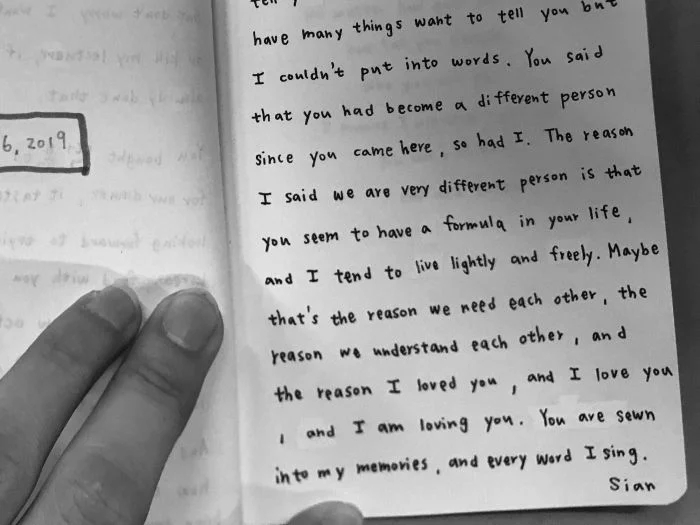 6, 2019
have many things want to tell you but
I couldn't put into words. You said
that you had become a different person
since you came here, so had I. The reason
I said we are very different person is that
you seem to have a formula in your life,
and I tend to live lightly and freely. Maybe
that's the reason we need each other, the
reason we understand each other, and
the reason I loved you, and I love you
, and I am loving you. You are sewn
into my memories, and every word I sing.
Sian